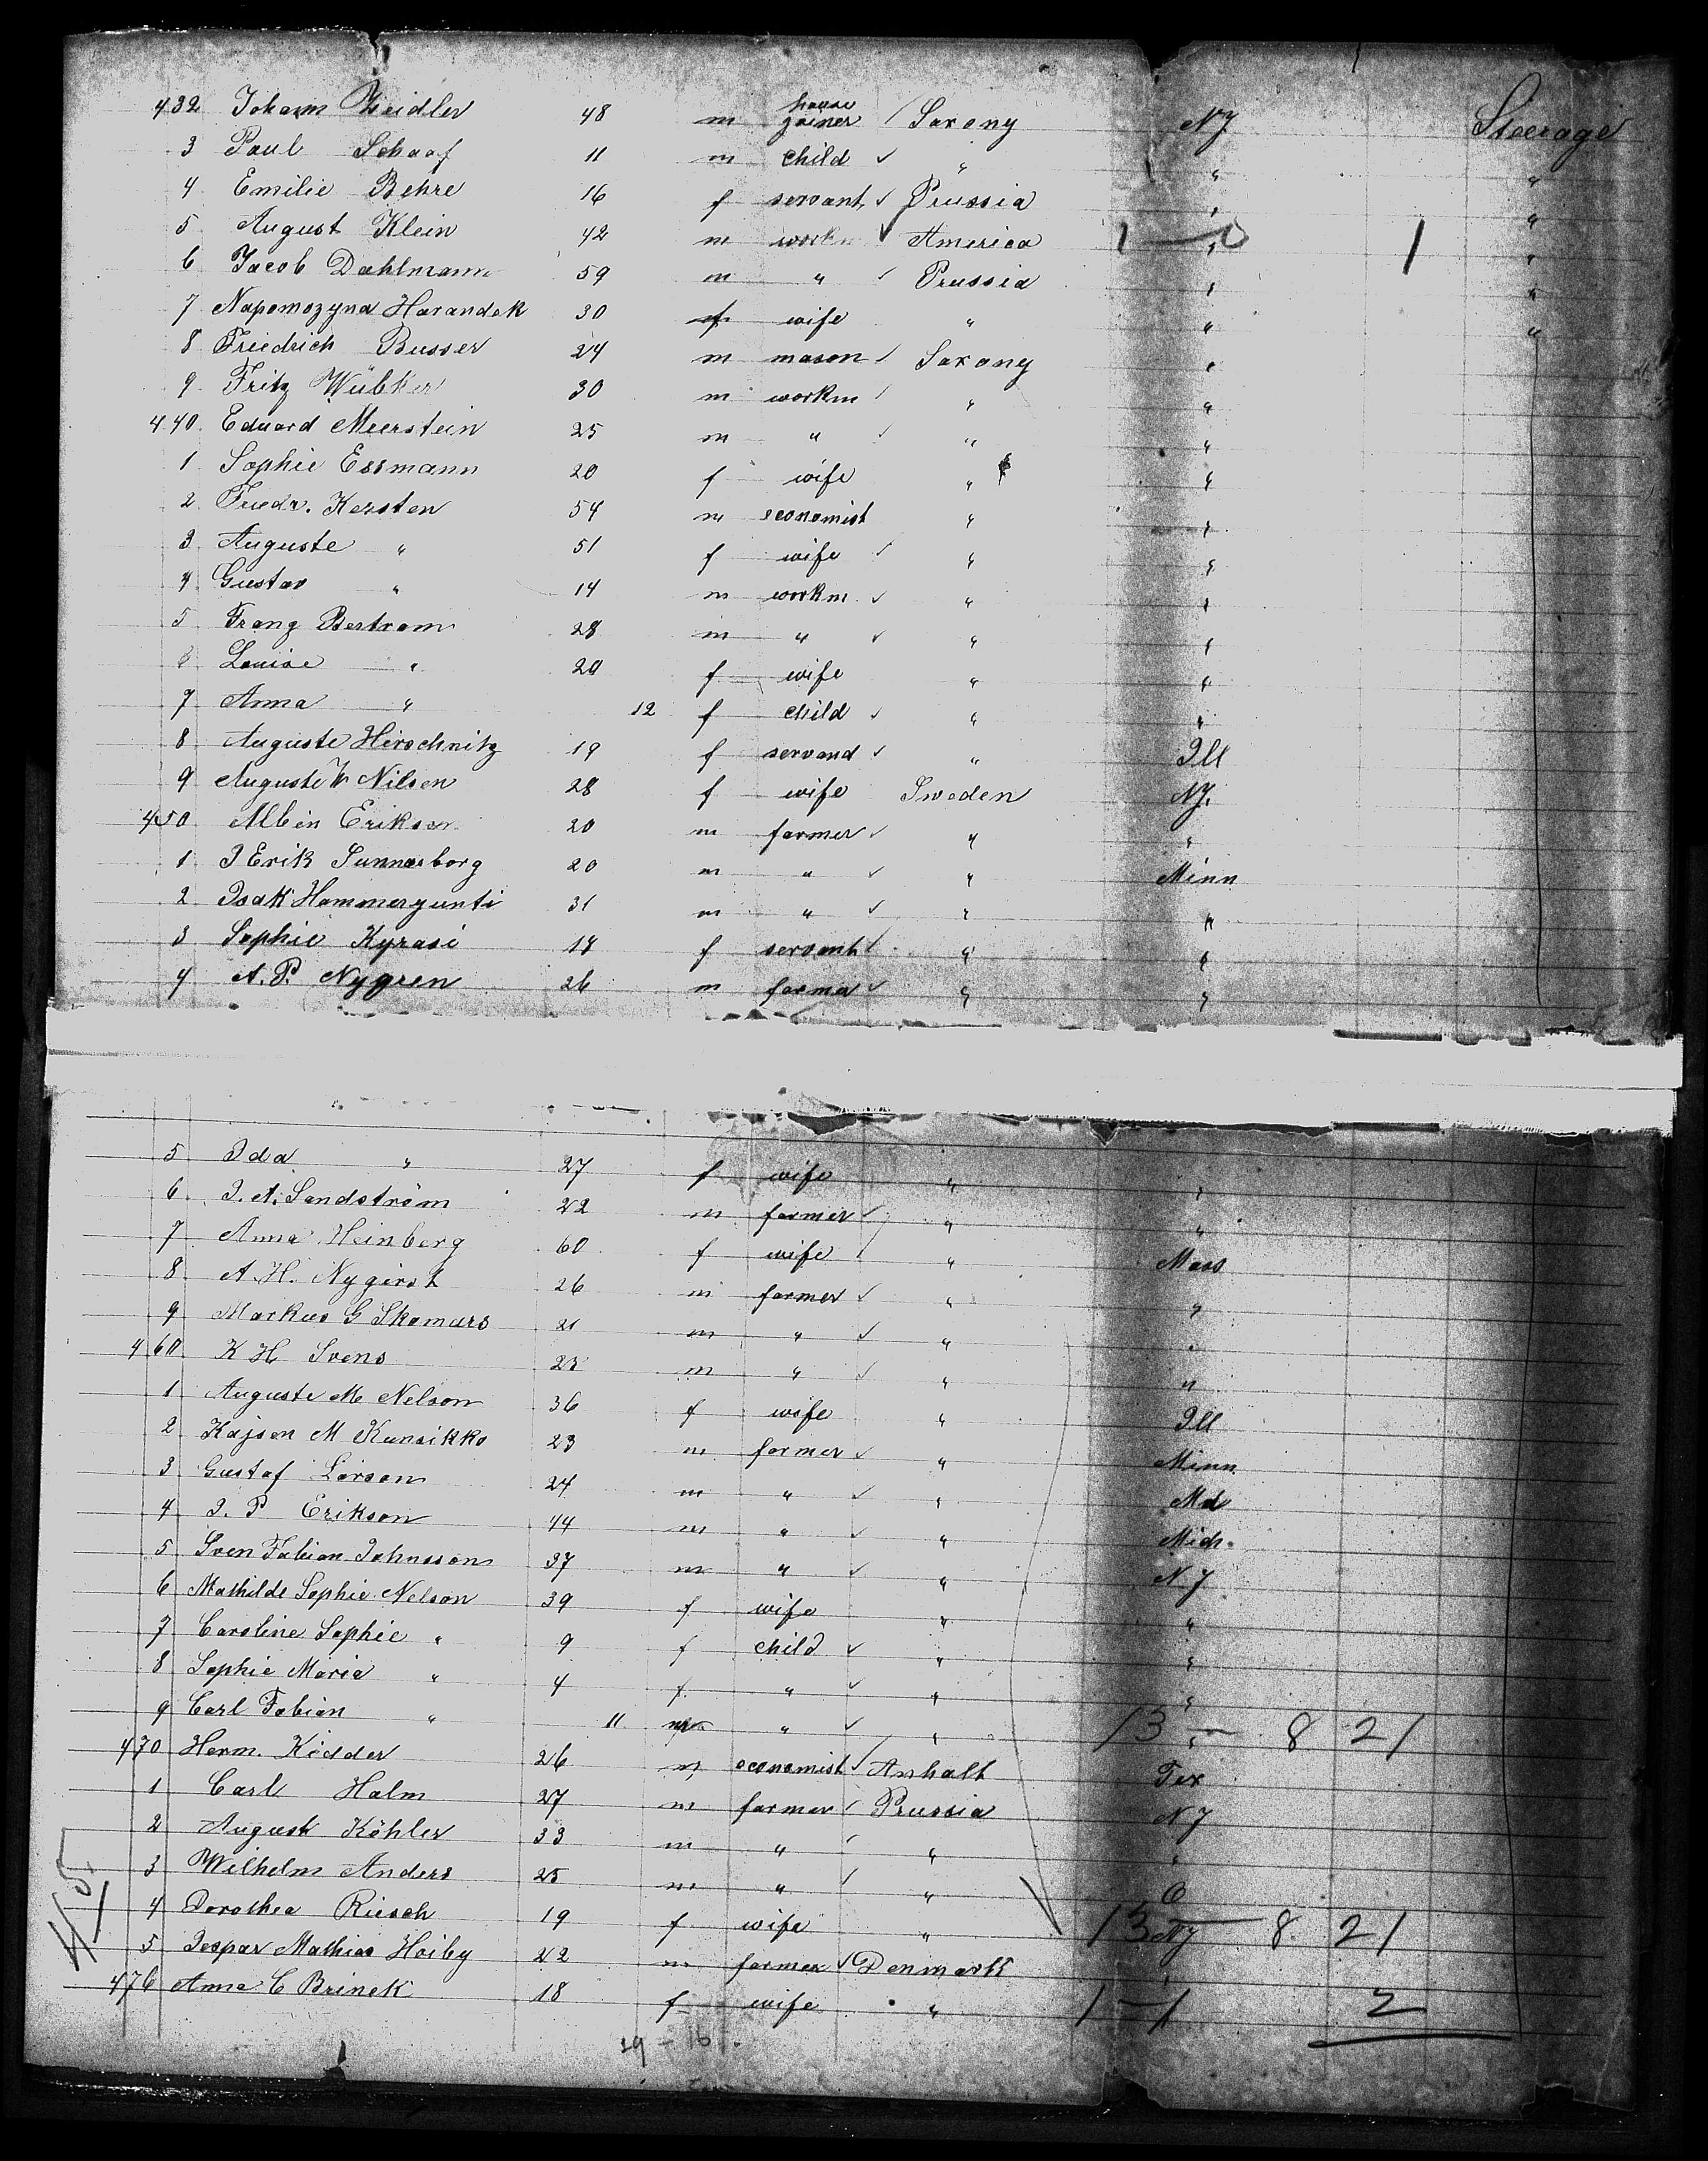 432 Johann Zeidler 48 m house joiner Saxony NY Steerage
3 Paul Schaaf 11 m child ✓ " " "
4 Emilie Behre 16 f servant ✓ Prussia " "
5 August Klein 42 m workm ✓ America " 1 — 0 1 "
6 Jacob Dahlmann 59 m " Prussia " "
7 Napomozyna Harandek 30 f wife " " "
8 Friedrich Busser 24 m mason Saxony "
9 Fritz Wübker 30 m workm " "
440 Eduard Meerstein 25 m " " "
1 Sophie Essmann 20 f wife " "
2 Friedr. Kersten 54 m economist " "
3 Auguste " 51 f wife " "
4 Gustav " 14 m workm ✓ " "
5 Franz Bertram 28 m " ✓ " "
6 Louise " 24 f wife " "
7 Anna " 12 f child ✓ " "
8 Auguste Hirschnitz 19 f servand ✓ " Ill
9 Auguste W Nilsen 28 f wife Sweden NY.
450 Albin Erikson 20 m farmer ✓ " "
1 J Erik Sunnerborg 20 m " ✓ " Minn
2 Isak Hammergunti 31 m " ✓ " "
3 Sophie Kyrasi 18 f servant " "
4 A. P. Nygren 26 m farmer ✓ " "
5 Ida " 27 f wife " "
6 J. A. Sandström 22 m farmer ✓ " "
7 Anna Heinberg 60 f wife " Mass
8 A. H. Nygirst 26 m farmer ✓ " "
9 Markus G Skomars 21 m " ✓ " "
460 K H Svens 25 m " ✓ " "
1 Auguste M Nelson 36 f wife " Ill
2 Kajsen M Kunsikko 23 m farmer ✓ " Minn.
3 Gustaf Larson 24 m " ✓ " Md
4 J. P Erikson 44 m " ✓ " Mich.
5 Sven Fabian Johnsson 37 m " ✓ " N.Y
6 Mathilde Sophie Nelson 39 f wife " "
7 Caroline Sophie " 9 f child ✓ " "
8 Sophie Maria " 4 f " ✓ " "
9 Carl Fabian " 11 m " ✓ " " 13 — 8 21
470 Herm. Kidder 26 m economist ✓ Anhalt Tex
1 Carl Halm 27 m farmer Prussia NY
2 August Köhler 33 m " " "
3 Wilhelm Anders 25 m " " O
4 Dorothea Riesch 19 f wife " NY 13 — 8 21
5 Jespar Mathias Hoiby 22 m farmer ✓ Denmark "
476 Anna C Brinck 18 f wife " 1 — 1 2
19 - 16